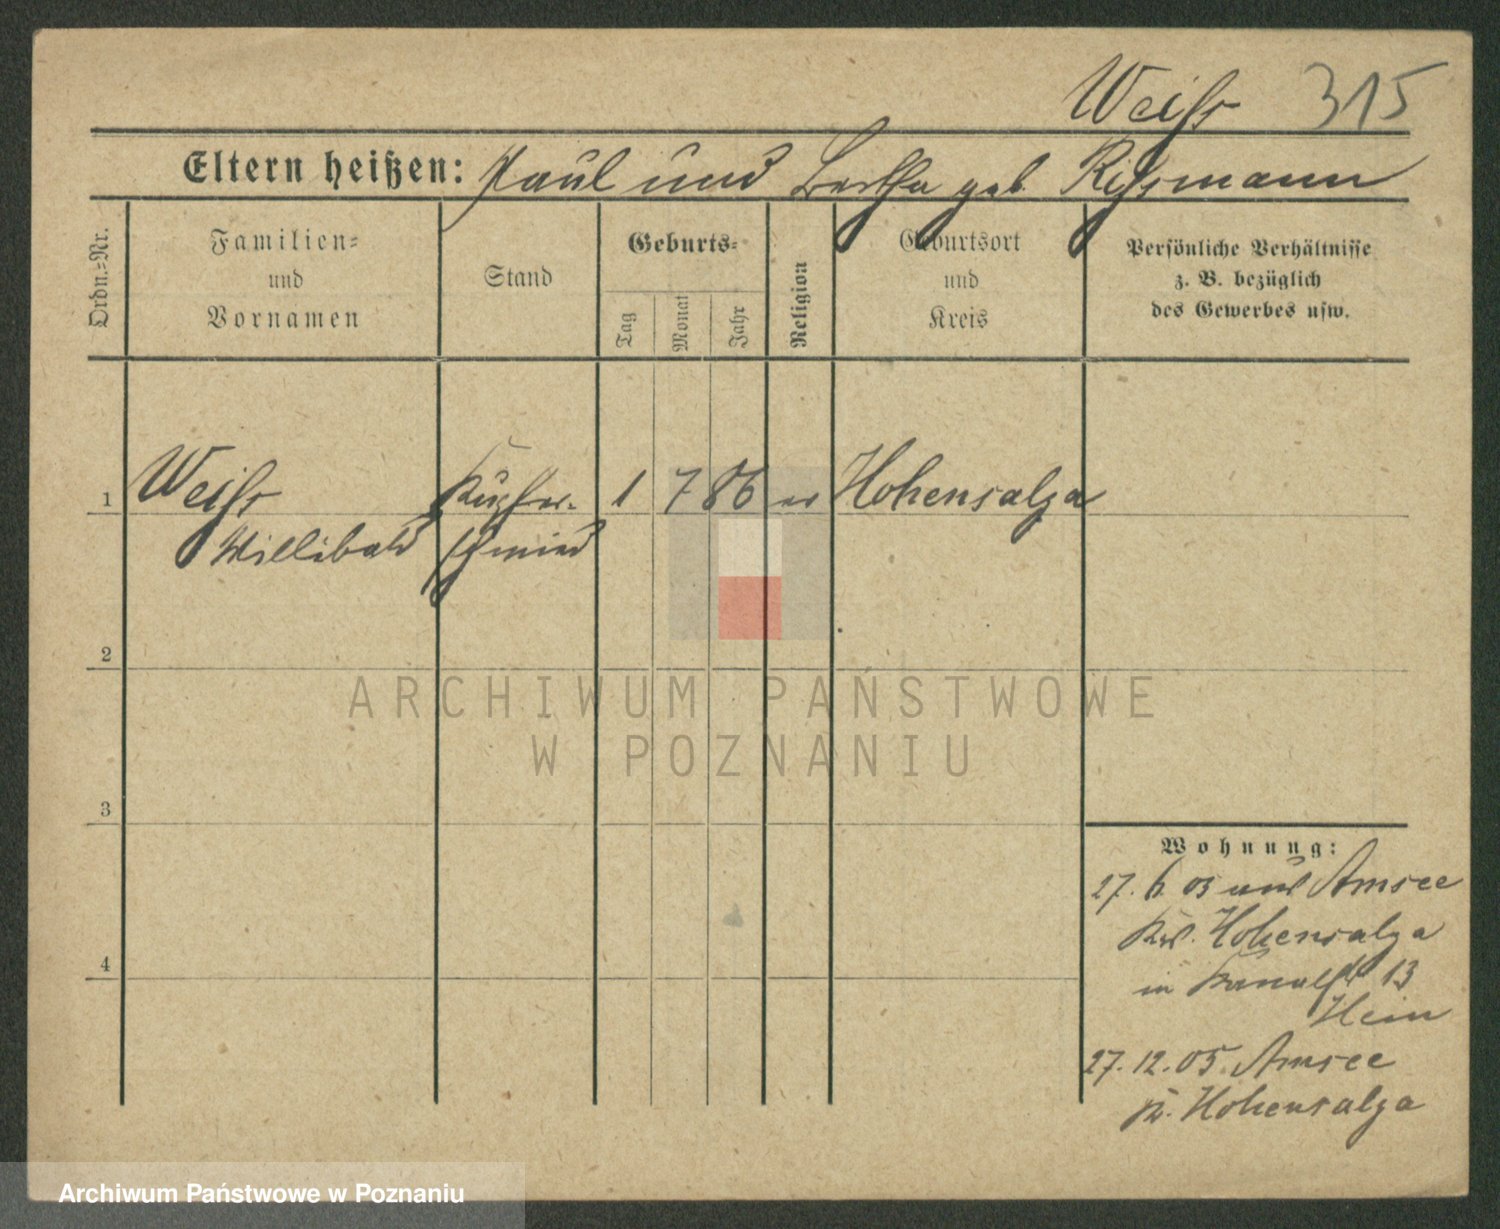 Weiß 315
Eltern heißen: Paul und Bertha geb. Rißmann
Ordn.=Nr.
Familien=
und
Vornamen
Stand
Geburts=
Tag
Monat
Jahr
Religion
Geburtsort
und
Kreis
Persönliche Verhältnisse
z. B. bezüglich
des Gewerbes usw.
1 Weiß Kupfer- 1 7 86 ev Hohensalza
Willibald schmied
2
ARCHIWUM PAŃSTWOWE
W POZNANIU
3
Wohnung:
27. 6. 05 Amsee
Kr. Hohensalza
4
in Kanalst 13
Hein
27. 12. 05. Amsee
Kr. Hohensalza
Archiwum Państwowe w Poznaniu